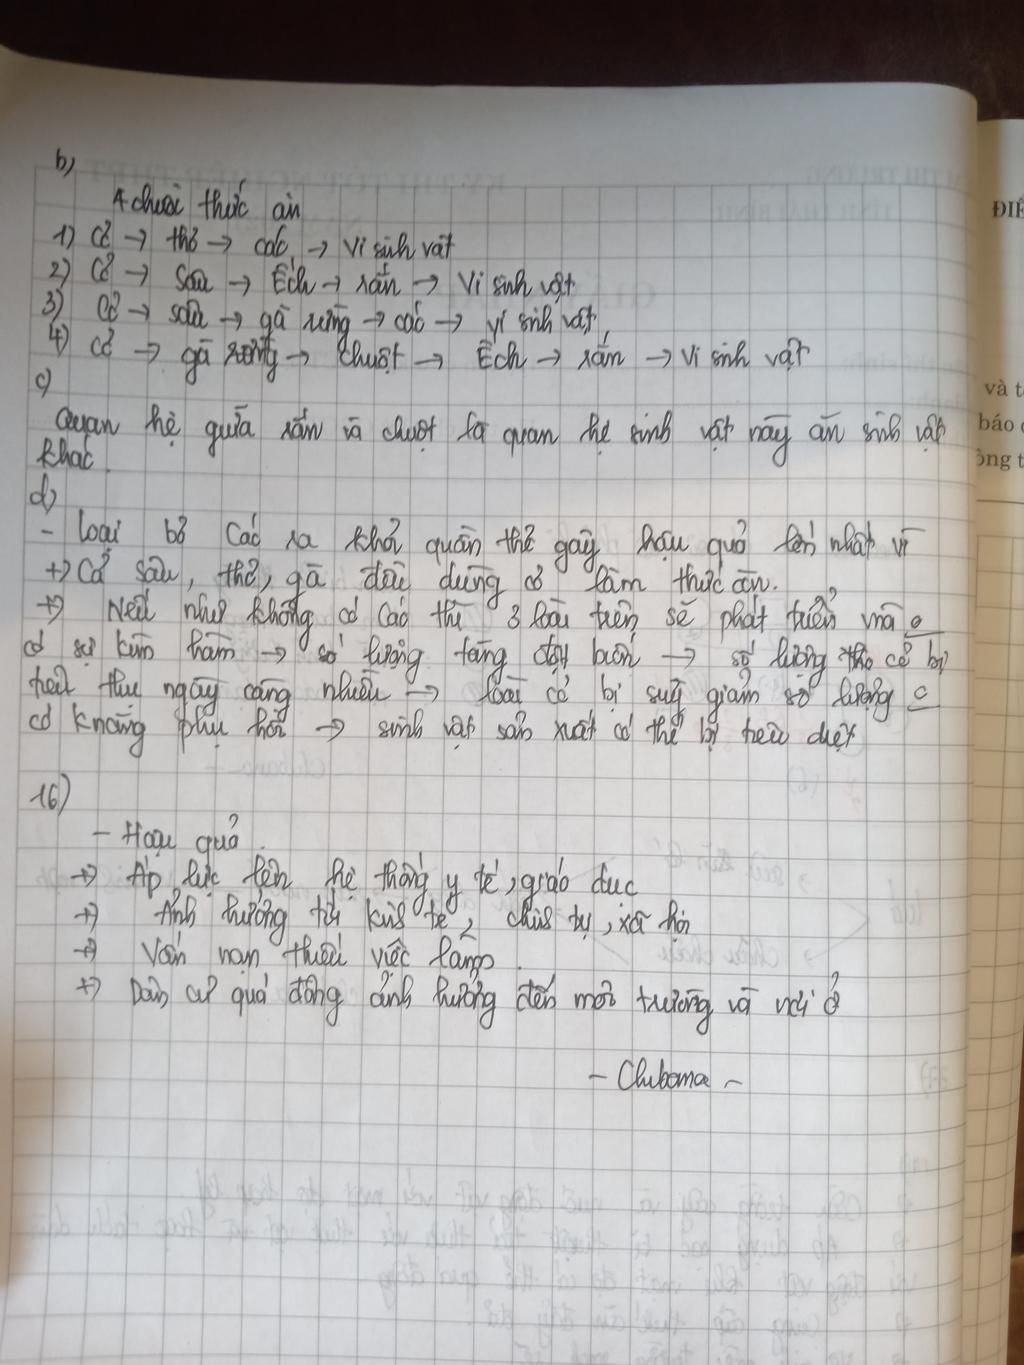 b)
4 chuỗi thức ăn
1) Cỏ → thỏ → cáo → Vi sinh vật
2) Cỏ → Sâu → Ếch → rắn → Vi sinh vật
3) Cỏ → sâu → gà rừng → cáo → vi sinh vật
4) Cỏ → gà rừng → chuột → Ếch → rắn → Vi sinh vật
c)
Quan hệ giữa rắn và chuột là quan hệ sinh vật này ăn sinh vật
khác.
d)
- Loại bỏ Cáo ra khỏi quần thể gây hậu quả lớn nhất vì
+) Cả sâu, thỏ, gà đều dùng cỏ làm thức ăn.
+) Nếu như không có Cáo thì 3 loài trên sẽ phát triển mà
có sự kìm hãm → số lượng tăng đột biến → số lượng cỏ bị
tiêu thụ ngày càng nhiều → loài cỏ bị suy giảm số lượng
có khả năng phục hồi → sinh vật sản xuất có thể bị tiêu diệt
16)
- Hậu quả.
+) Áp lực lên hệ thống y tế, giáo dục
+) Ảnh hưởng tới kinh tế, chính trị, xã hội
+) Vấn nạn thiếu việc làm.
+) Dân cư quá đông ảnh hưởng đến môi trường và nơi ở
- Chibama -
ĐIỀ
và t
báo
ông t